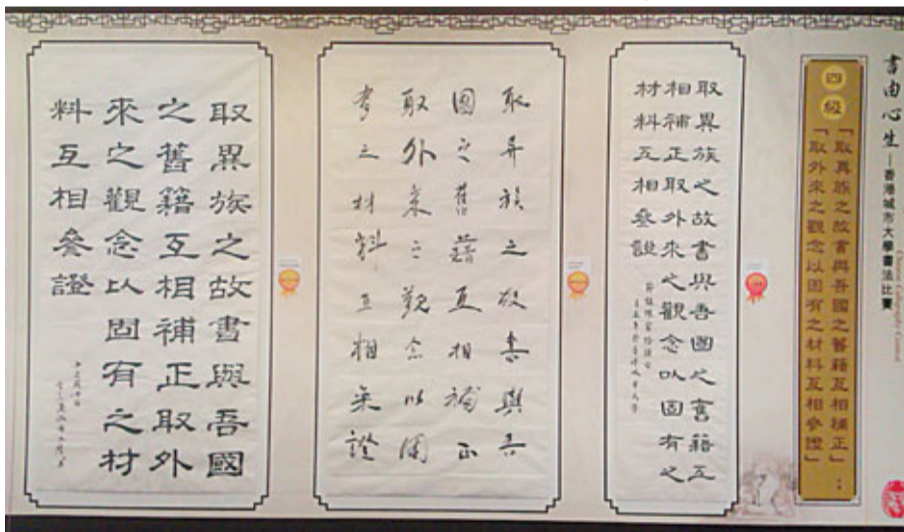 書由心生—香港城市大學書法比賽
Chinese Calligraphy Contest
四級
「取異族之故書與吾國之舊籍互相補正」；
「取外來之觀念以固有之材料互相參證」
取異族之故書與吾國之舊籍互
相補正取外來之觀念以固有之
材料互相參證
取異族之故書與吾
國之舊籍互相補正
取外來之觀念以固
有之材料互相參證
取異族之故書與吾國
之舊籍互相補正取外
來之觀念以固有之材
料互相參證